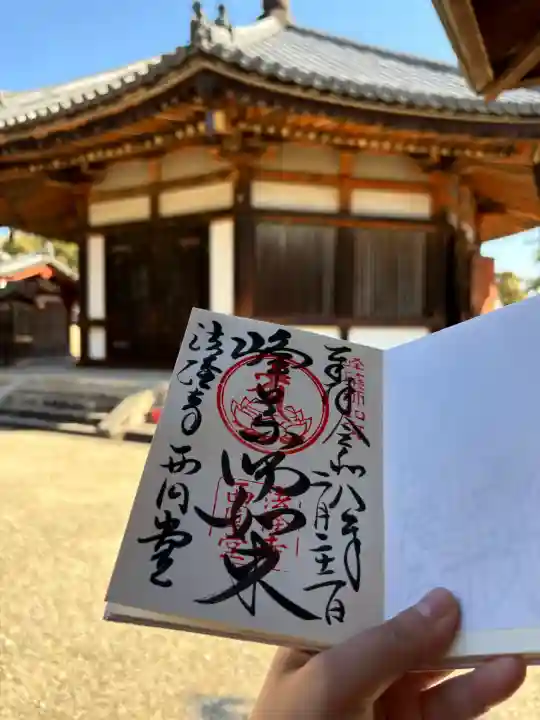 奉拝 令和八年
二月
峯薬師如来
法隆寺 西円堂